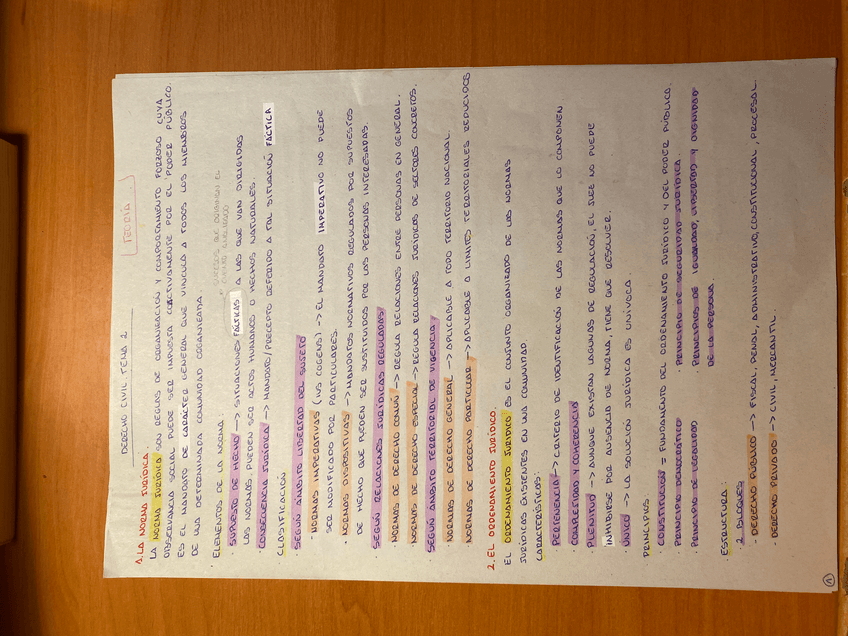 DERECHO CIVIL TEMA 2
[TEORIA...]
1. LA NORMA JURÍDICA.
LA NORMA JURÍDICA SON REGLAS DE ORGANIZACIÓN Y COMPORTAMIENTO FORZOSO CUYA
OBSERVANCIA SOCIAL PUEDE SER IMPUESTA COACTIVAMENTE POR EL PODER PÚBLICO.
ES EL MANDATO DE CARÁCTER GENERAL QUE VINCULA A TODOS LOS MIEMBROS
DE UNA DETERMINADA COMUNIDAD ORGANIZADA.
· ELEMENTOS DE LA NORMA:
SUCESOS QUE DETERMINEN EL
· SUPUESTO DE HECHO -> SITUACIONES FÁCTICAS A LAS QUE VAN DIRIGIDAS
LAS NORMAS. PUEDEN SER ACTOS HUMANOS O HECHOS NATURALES.
· CONSECUENCIA JURÍDICA -> MANDATO/PRECEPTO REFERIDO A TAL SITUACIÓN FÁCTICA
CLASIFICACIÓN
· SEGÚN ÁMBITO LIBERTAD DEL SUJETO
· NORMAS IMPERATIVAS (IUS COGENS) -> EL MANDATO IMPERATIVO NO PUEDE
SER MODIFICADO POR PARTICULARES.
· NORMAS DISPOSITIVAS -> MANDATOS NORMATIVOS REGULADOS POR SUPUESTOS
DE HECHO QUE PUEDEN SER SUSTITUIDOS POR LAS PERSONAS INTERESADAS.
· SEGÚN RELACIONES JURÍDICAS REGULADAS
· NORMAS DE DERECHO COMÚN -> REGULA RELACIONES ENTRE PERSONAS EN GENERAL.
· NORMAS DE DERECHO ESPECIAL -> REGULA RELACIONES JURÍDICAS DE SECTORES CONCRETOS.
· SEGÚN ÁMBITO TERRITORIAL DE VIGENCIA
· NORMAS DE DERECHO GENERAL -> APLICABLE A TODO TERRITORIO NACIONAL.
NORMAS DE DERECHO PARTICULAR -> APLICABLE A LIMITES TERRITORIALES REDUCIDOS
2. EL ORDENAMIENTO JURÍDICO.
EL ORDENAMIENTO JURÍDICO ES EL CONJUNTO ORGANIZADO DE LAS NORMAS
JURÍDICAS EXISTENTES EN UNA COMUNIDAD.
CARACTERÍSTICAS:
· PERTENENCIA -> CRITERIO DE IDENTIFICACIÓN DE LAS NORMAS QUE LO COMPONEN
COMPLEJIDAD Y COHERENCIA
PLENITUD -> AUNQUE EXISTAN LAGUNAS DE REGULACIÓN, EL JUEZ NO PUEDE
INHIBIRSE POR AUSENCIA DE NORMA, TIENE QUE RESOLVER.
· ÚNICO -> LA SOLUCIÓN JURÍDICA ES UNÍVOCA.
PRINCIPIOS
· CONSTITUCIÓN = FUNDAMENTO DEL ORDENAMIENTO JURÍDICO Y DEL PODER PÚBLICO.
· PRINCIPIO DEMOCRÁTICO · PRINCIPIO DE SEGURIDAD JURÍDICA
· PRINCIPIO DE LEGALIDAD · PRINCIPIOS DE IGUALDAD, LIBERTAD Y DIGNIDAD
DE LA PERSONA.
· ESTRUCTURA:
2 BLOQUES
· DERECHO PÚBLICO -> FISCAL, PENAL, ADMINISTRATIVO, CONSTITUCIONAL, PROCESAL
· DERECHO PRIVADO -> CIVIL, MERCANTIL.
1